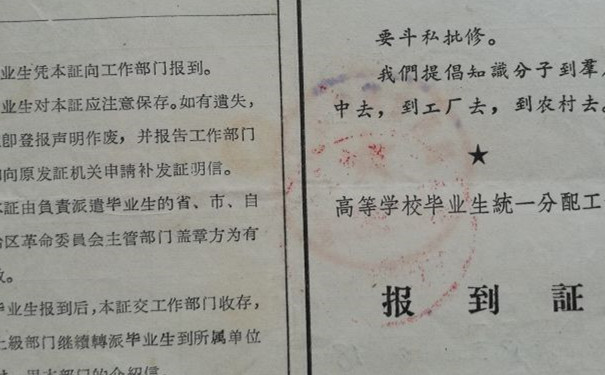 业生凭本証向工作部门报到。
业生对本証应注意保存。如有遺失，
卽登报声明作废，并报告工作部门
向原发証机关申請补发証明信。
本証由負責派遣毕业生的省、市、自
治区革命委員会主管部门盖章方为有
效。
毕业生报到后，本証交工作部门收存，
上級部门继續轉派毕业生到所属单位
时，用本部门的介紹信。
要斗私批修。
我們提倡知識分子到羣
中去，到工厂去，到农村去。
★
高等学校毕业生統一分配工
报到証